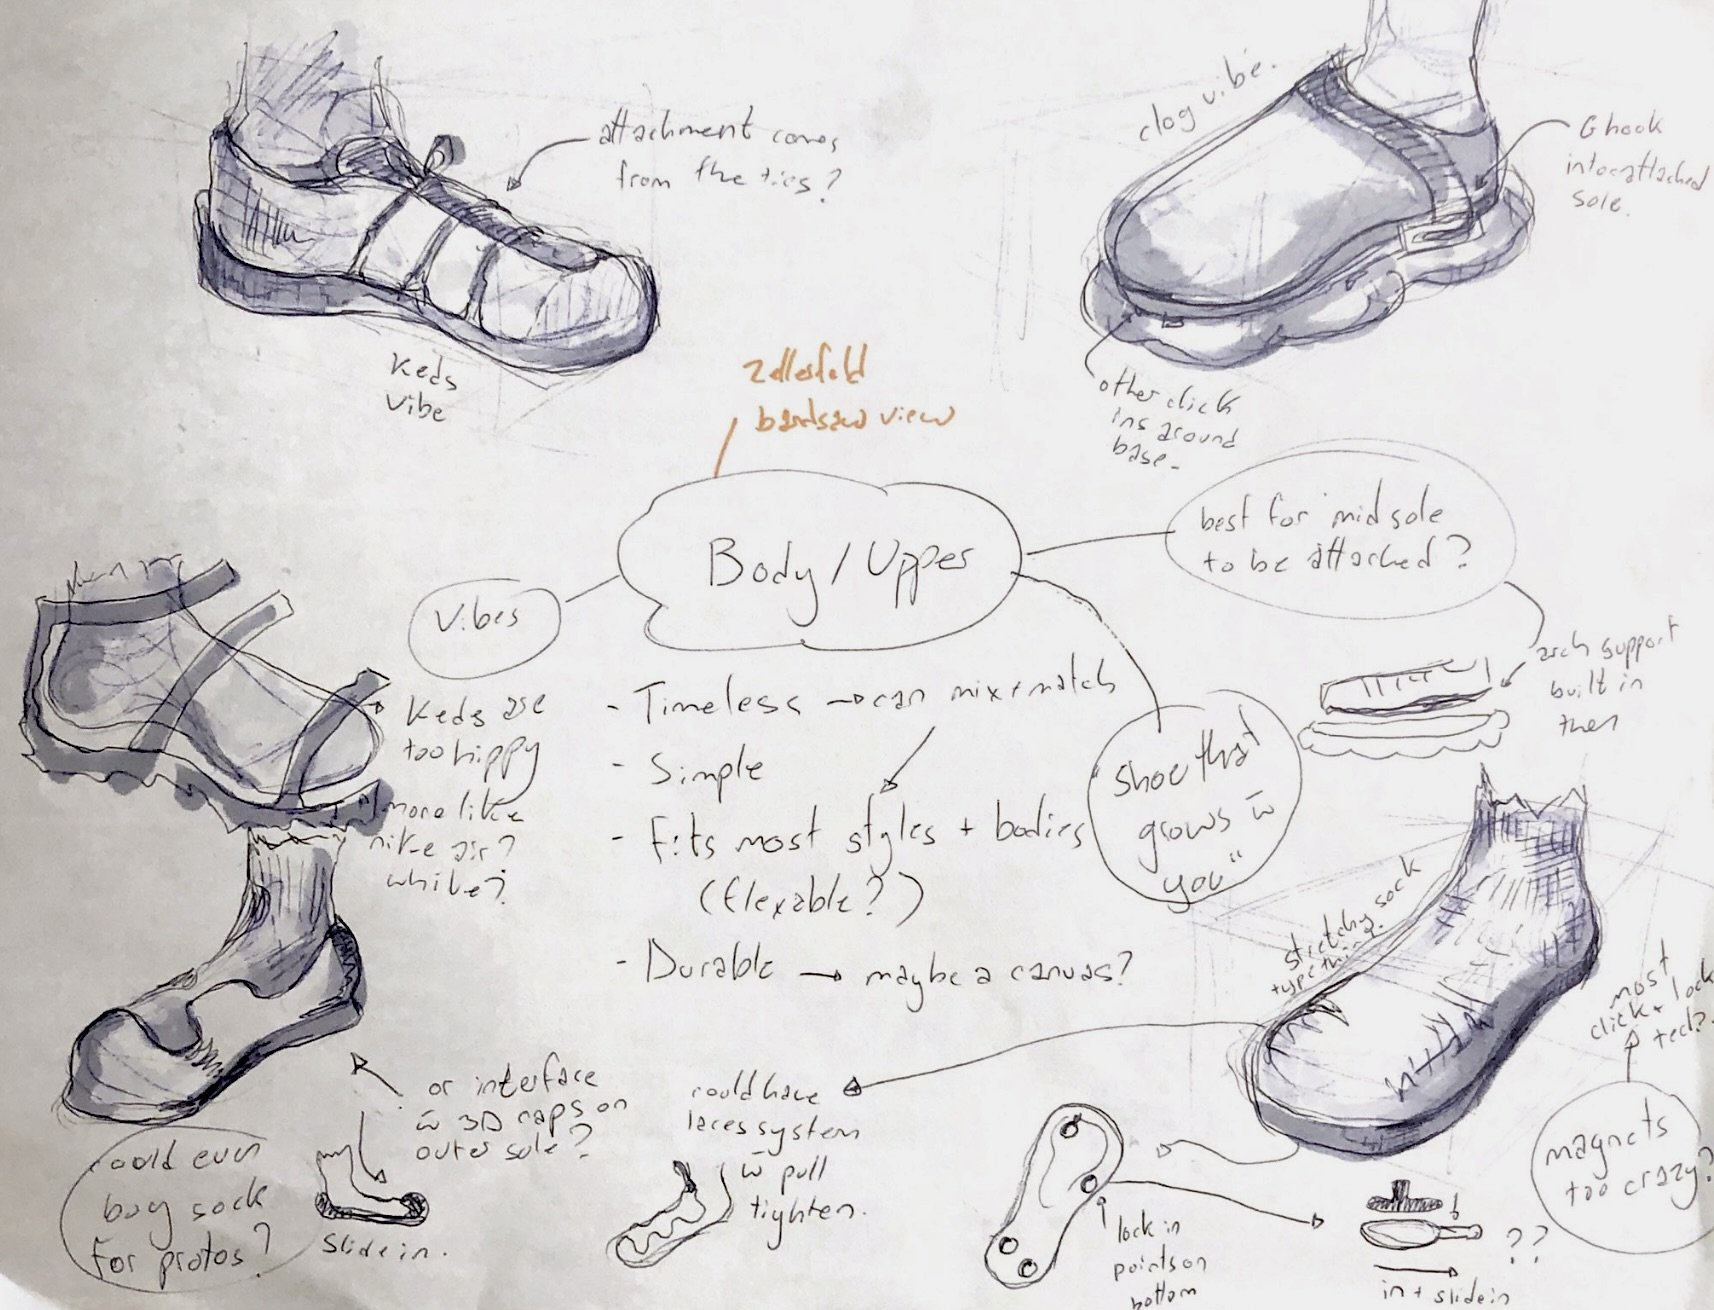 attachment comes
from the ties?
Keds
vibe
clog vibe.
G hook
into attached
sole.
other click
ins around
base.
bandsaw view
Body / Upper
best for midsole
to be attached?
arch support
built in
then
Vibes
Keds are
too hippy
more like
nike air?
while?
- Timeless → can mix + match
- Simple
- Fits most styles + bodies
(flexable?)
- Durable → maybe a canvas?
"shoe that
grows w̄
you"
stretchy sock
type thing?
most
click + lock
tech?
magnets
too crazy?
or interface
w̄ 3D caps on
outer sole?
could even
buy sock
for protos?
slide in.
could have
laces system
w̄ pull
tighten.
lock in
points on
bottom
??
in + slide in